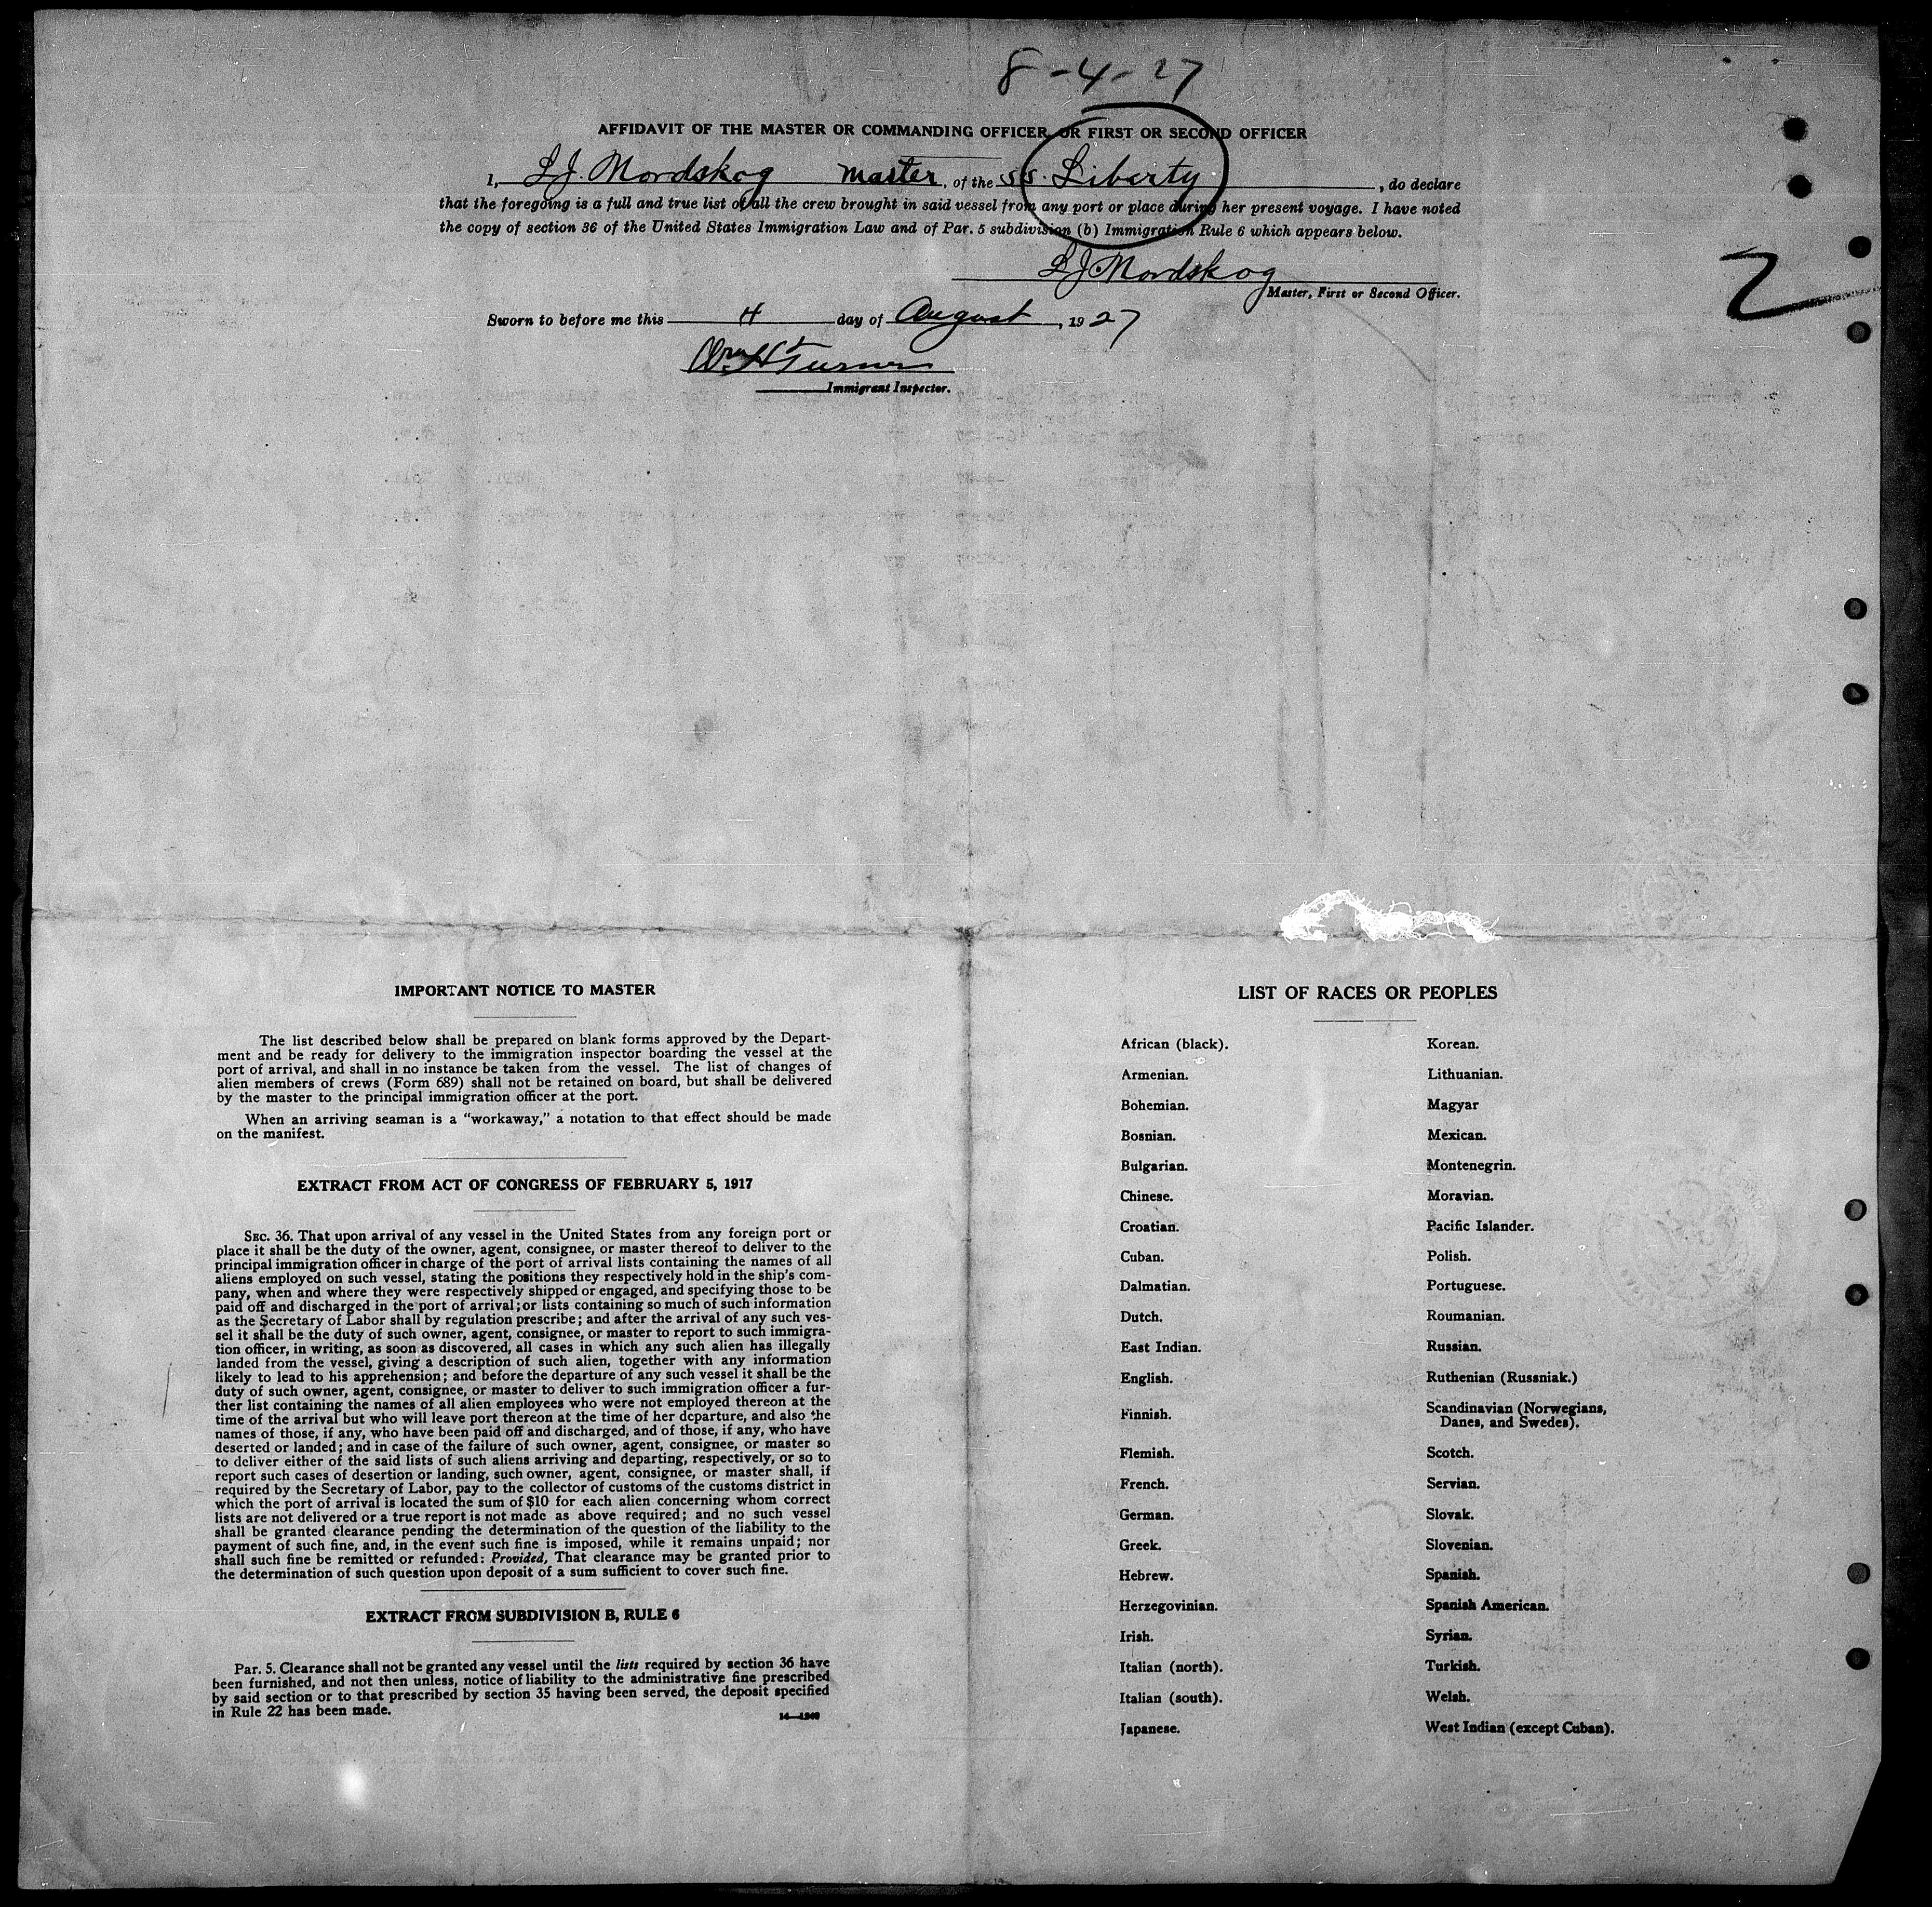 8-4-27
AFFIDAVIT OF THE MASTER OR COMMANDING OFFICER, OR FIRST OR SECOND OFFICER
I, L.J. Nordskog master, of the SS. Liberty, do declare
that the foregoing is a full and true list of all the crew brought in said vessel from any port or place during her present voyage. I have noted
the copy of section 36 of the United States Immigration Law and of Par. 5 subdivision (b) Immigration Rule 6 which appears below.
L J Nordskog
Master, First or Second Officer.
2
Sworn to before me this 4 day of August, 1927
Wm H Turner
Immigrant Inspector.
IMPORTANT NOTICE TO MASTER
The list described below shall be prepared on blank forms approved by the Depart-
ment and be ready for delivery to the immigration inspector boarding the vessel at the
port of arrival, and shall in no instance be taken from the vessel. The list of changes of
alien members of crews (Form 689) shall not be retained on board, but shall be delivered
by the master to the principal immigration officer at the port.
When an arriving seaman is a "workaway," a notation to that effect should be made
on the manifest.
EXTRACT FROM ACT OF CONGRESS OF FEBRUARY 5, 1917
SEC. 36. That upon arrival of any vessel in the United States from any foreign port or
place it shall be the duty of the owner, agent, consignee, or master thereof to deliver to the
principal immigration officer in charge of the port of arrival lists containing the names of all
aliens employed on such vessel, stating the positions they respectively hold in the ship's com-
pany, when and where they were respectively shipped or engaged, and specifying those to be
paid off and discharged in the port of arrival; or lists containing so much of such information
as the Secretary of Labor shall by regulation prescribe; and after the arrival of any such ves-
sel it shall be the duty of such owner, agent, consignee, or master to report to such immigra-
tion officer, in writing, as soon as discovered, all cases in which any such alien has illegally
landed from the vessel, giving a description of such alien, together with any information
likely to lead to his apprehension; and before the departure of any such vessel it shall be the
duty of such owner, agent, consignee, or master to deliver to such immigration officer a fur-
ther list containing the names of all alien employees who were not employed thereon at the
time of the arrival but who will leave port thereon at the time of her departure, and also the
names of those, if any, who have been paid off and discharged, and of those, if any, who have
deserted or landed; and in case of the failure of such owner, agent, consignee, or master so
to deliver either of the said lists of such aliens arriving and departing, respectively, or so to
report such cases of desertion or landing, such owner, agent, consignee, or master shall, if
required by the Secretary of Labor, pay to the collector of customs of the customs district in
which the port of arrival is located the sum of $10 for each alien concerning whom correct
lists are not delivered or a true report is not made as above required; and no such vessel
shall be granted clearance pending the determination of the question of the liability to the
payment of such fine, and, in the event such fine is imposed, while it remains unpaid; nor
shall such fine be remitted or refunded: Provided, That clearance may be granted prior to
the determination of such question upon deposit of a sum sufficient to cover such fine.
EXTRACT FROM SUBDIVISION B, RULE 6
Par. 5. Clearance shall not be granted any vessel until the lists required by section 36 have
been furnished, and not then unless, notice of liability to the administrative fine prescribed
by said section or to that prescribed by section 35 having been served, the deposit specified
in Rule 22 has been made.
LIST OF RACES OR PEOPLES
African (black).
Armenian.
Bohemian.
Bosnian.
Bulgarian.
Chinese.
Croatian.
Cuban.
Dalmatian.
Dutch.
East Indian.
English.
Finnish.
Flemish.
French.
German.
Greek.
Hebrew.
Herzegovinian.
Irish.
Italian (north).
Italian (south).
Japanese.
Korean.
Lithuanian.
Magyar
Mexican.
Montenegrin.
Moravian.
Pacific Islander.
Polish.
Portuguese.
Roumanian.
Russian.
Ruthenian (Russniak.)
Scandinavian (Norwegians,
Danes, and Swedes).
Scotch.
Servian.
Slovak.
Slovenian.
Spanish.
Spanish American.
Syrian.
Turkish.
Welsh.
West Indian (except Cuban).